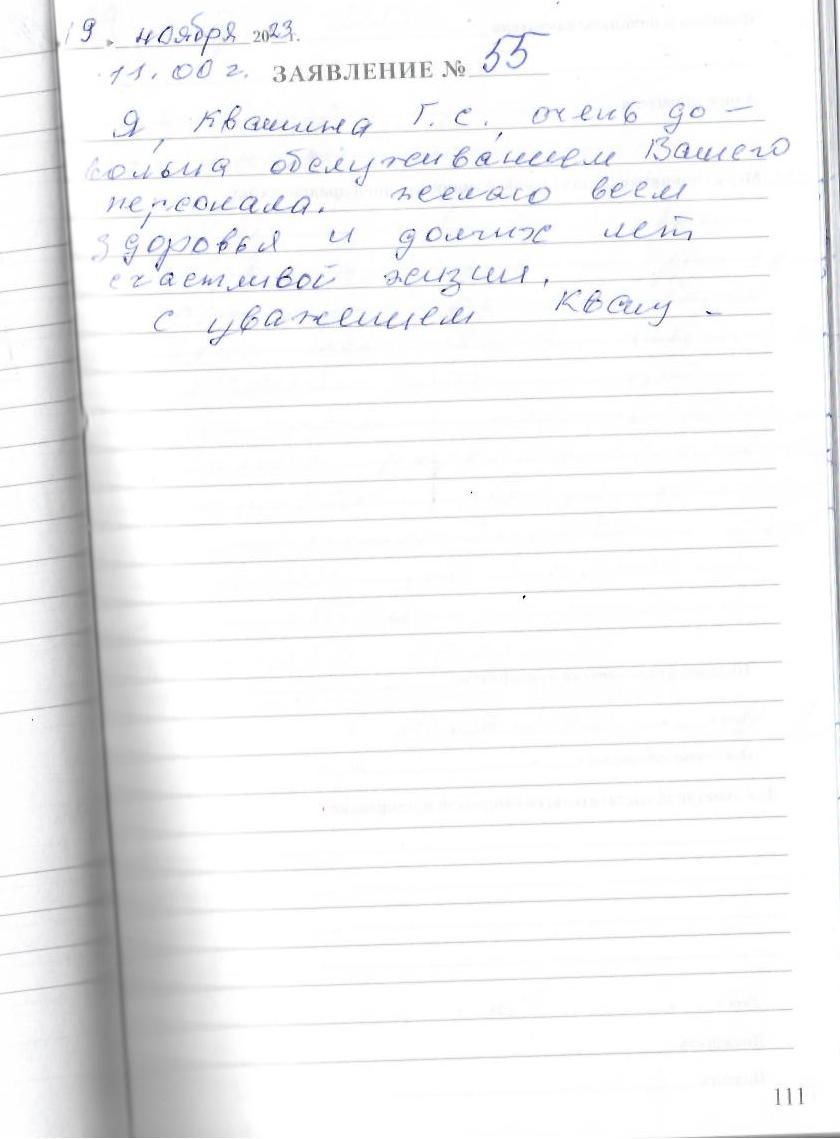 19. ноября 2023г.
11.00 г. ЗАЯВЛЕНИЕ № 55
Я, Квашина Г. С., очень до-
вольна обслуживанием Вашего
персонала. Желаю всем
здоровья и долгих лет
счастливой жизни.
С уважением Кваш
111